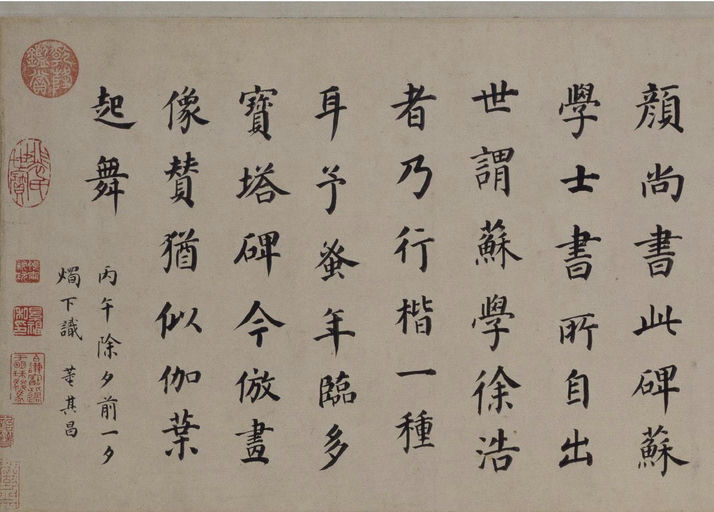 顔尚書此碑蘇
學士書所自出
世謂蘇學徐浩
者乃行楷一種
耳予蚤年臨多
寶塔碑今倣畫
像贊猶似伽葉
起舞
丙午除夕前一夕
燭下識 董其昌
乾隆
鑑賞